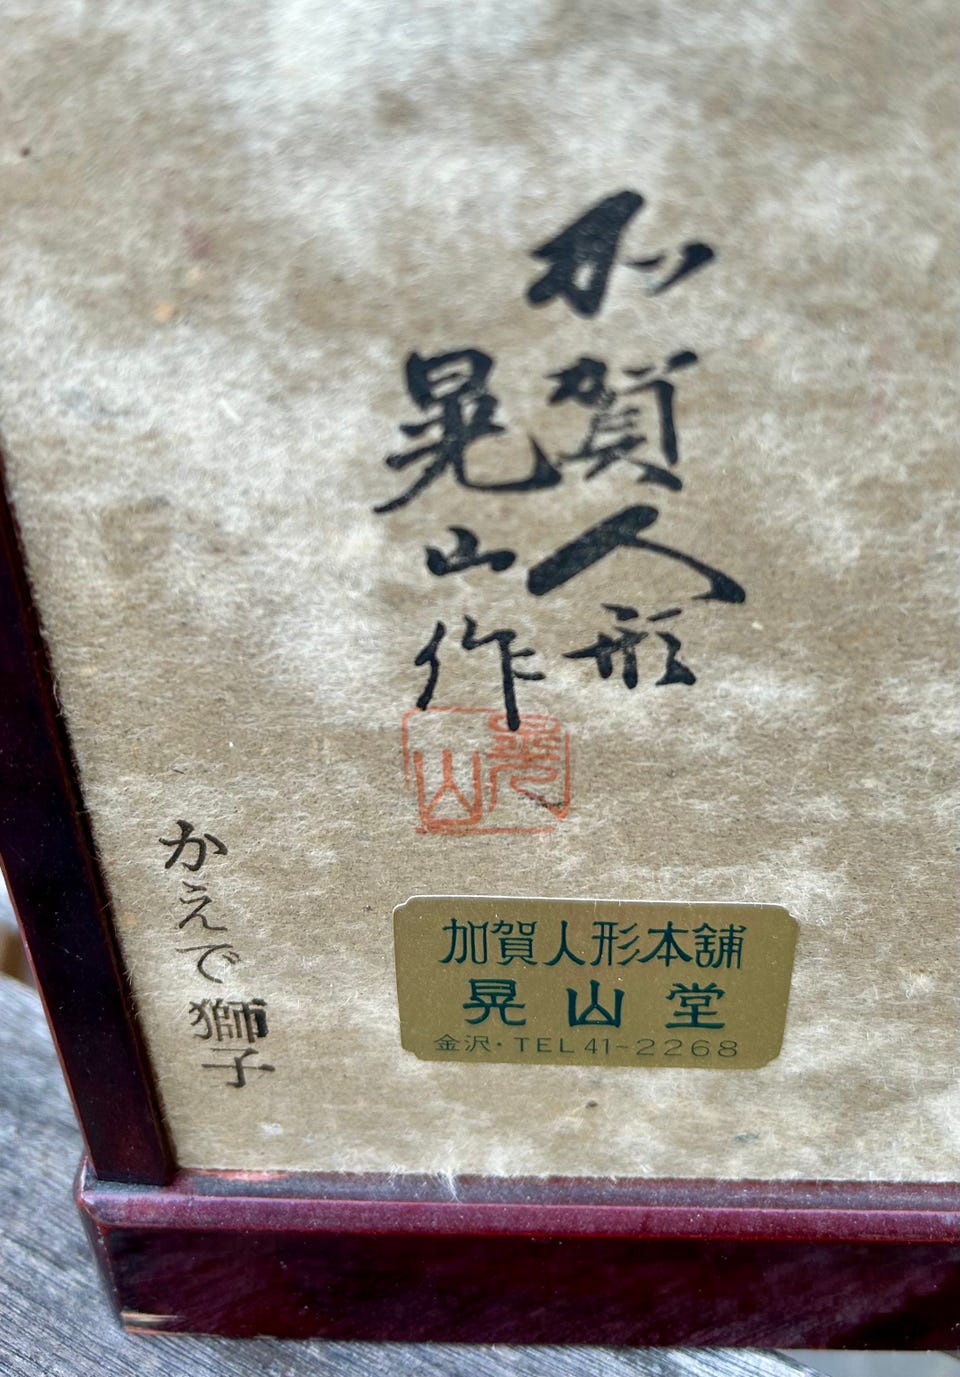 加賀人形
晃山作
晃山
かえで獅子
加賀人形本舗
晃山堂
金沢・TEL 41-2268